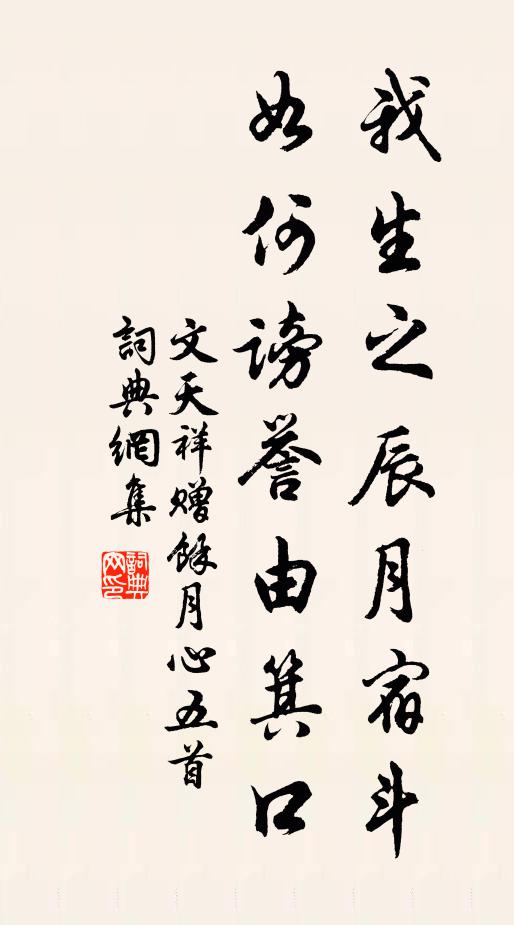 我生之辰月宿斗
如何謗譽由箕口
文天祥贈餘月心五首
詞典網集
詞典
网印